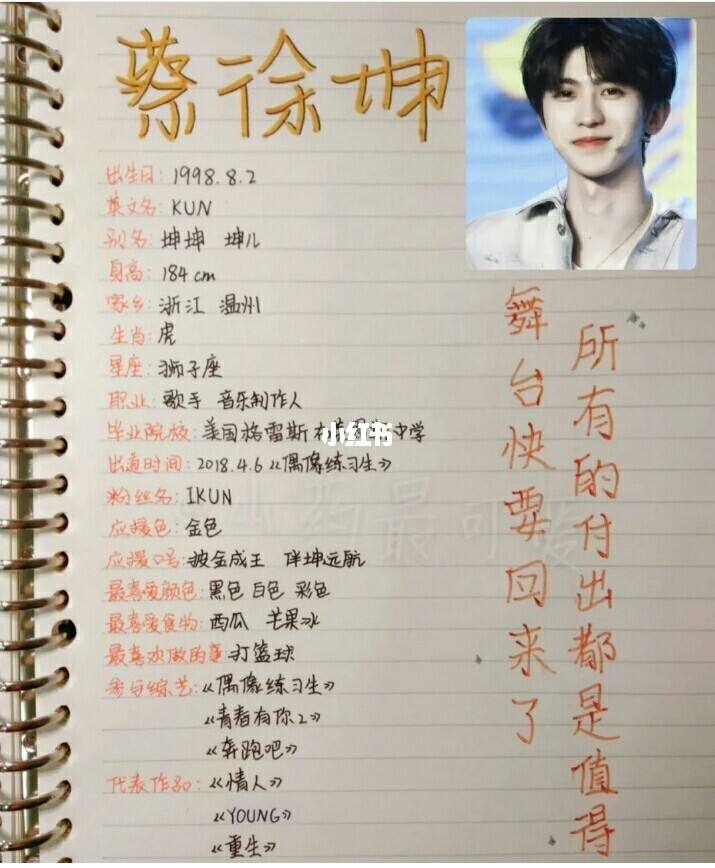 蔡徐坤
出生日：1998.8.2
英文名：KUN
别名：坤坤 坤儿
身高：184cm
家乡：浙江 温州
生肖：虎
星座：狮子座
职业：歌手 音乐制作人
毕业院校：美国格雷斯中学
小红书
出道时间：2018.4.6《偶像练习生》
粉丝名：IKUN
应援色：金色
应援口号：披金成王 伴坤远航
最喜爱颜色：黑色 白色 彩色
最喜爱食物：西瓜 芒果冰
最喜欢做的事：打篮球
参与综艺：《偶像练习生》
《青春有你2》
《奔跑吧》
代表作品：《情人》
《YOUNG》
《重生》
所有的付出都是值得
舞台快要回来了